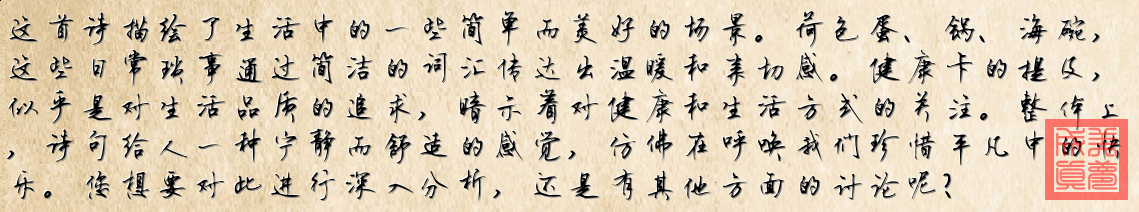 这首诗描绘了生活中的一些简单而美好的场景。荷色蛋、锅、海碗，
这些日常琐事通过简洁的词汇传达出温暖和亲切感。健康卡的提及，
似乎是对生活品质的追求，暗示着对健康和生活方式的关注。整体上
，诗句给人一种宁静而舒适的感觉，仿佛在呼唤我们珍惜平凡中的快
乐。您想要对此进行深入分析，还是有其他方面的讨论呢？